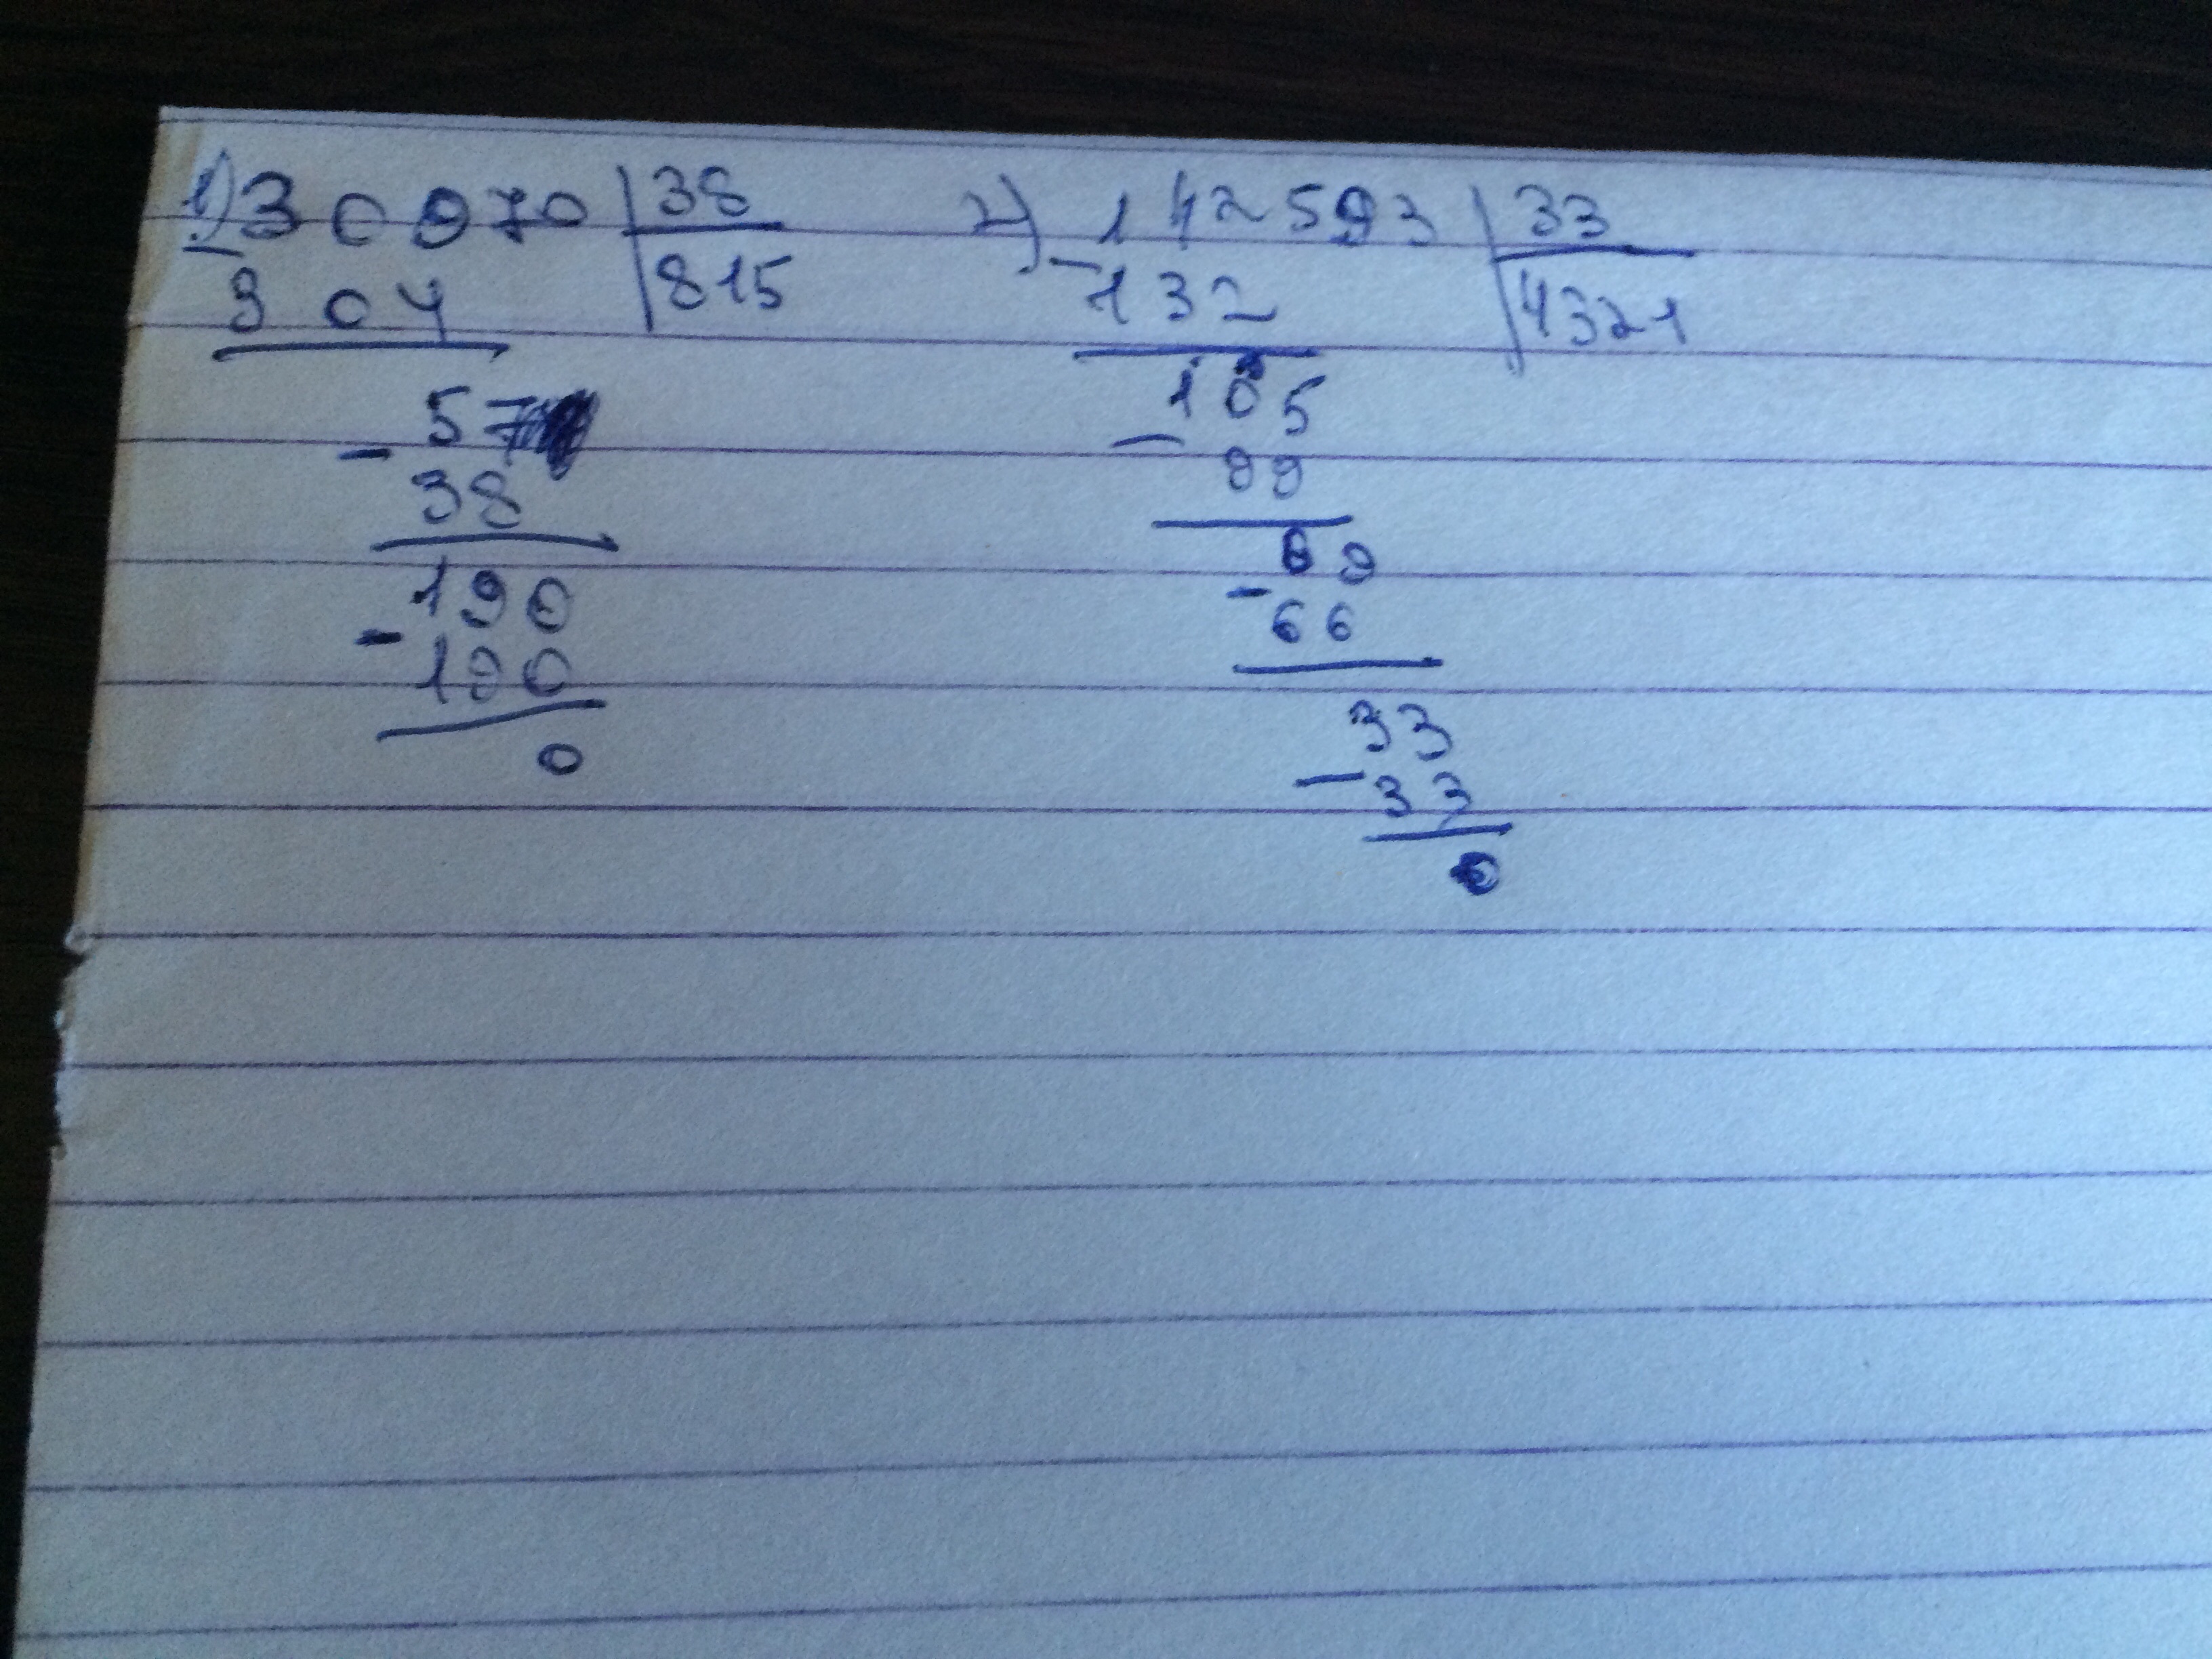 1) 30970 | 38
- 304 | 815
- 57
38
190
- 190
0
2) 142593 | 33
- 132 | 4321
105
- 99
69
- 66
33
- 33
0